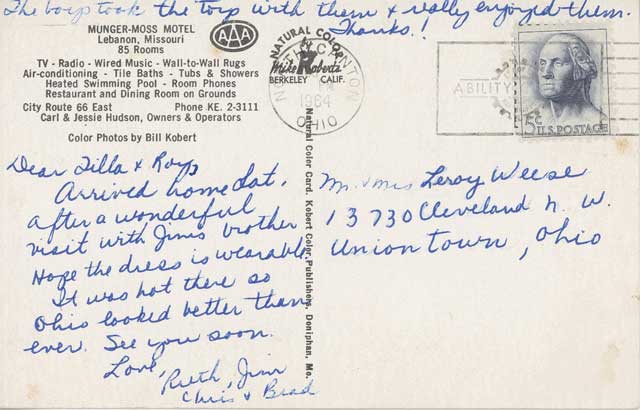 The boys took the toys with them & really enjoyed them.
Thanks!
MUNGER-MOSS MOTEL
Lebanon, Missouri
85 Rooms
AAA
TV - Radio - Wired Music - Wall-to-Wall Rugs
Air-conditioning - Tile Baths - Tubs & Showers
Heated Swimming Pool - Room Phones
Restaurant and Dining Room on Grounds
City Route 66 East Phone KE. 2-3111
Carl & Jessie Hudson, Owners & Operators
Color Photos by Bill Kobert
NATURAL COLOR
by
Mike Roberts
BERKELEY CALIF.
NORTH CANTON
1964
OHIO
ABILITY
5c
U.S. POSTAGE
Natural Color Card, Kobert Color Publisher, Doniphan, Mo.
Dear Tilla & Roy,
Arrived home Sat.
after a wonderful
visit with Jim's brother
Hope the dress is wearable
It was hot there so
Ohio looked better than
ever. See you soon.
Love,
Ruth, Jim
Chris & Brad
Mr. & Mrs Leroy Weese
13730 Cleveland N. W.
Uniontown, Ohio